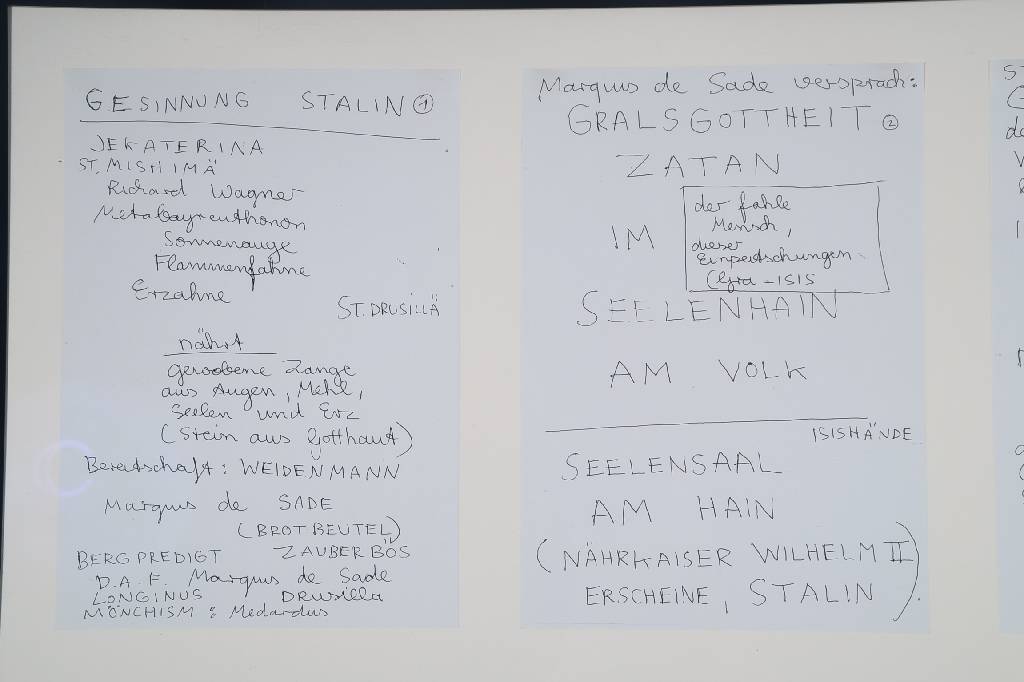 GESINNUNG STALIN ①
JEKATERINA
ST. MISHIMÄ
Richard Wagner
Metabayreuthonon
Sonnenauge
Flammenfahne
Erzahne
ST. DRUSILLÄ
nährt
gerobene Zange
aus Augen, Mehl,
Seelen und Erz
(Stein aus Gotthaut)
Bereitschaft: WEIDENMANN
Marquis de SADE
(BROTBEUTEL)
BERGPREDIGT ZAUBERBÖS
D.A.F. Marquis de Sade
LONGINUS Drusilla
MÖNCHISM: Medardus
Marquis de Sade versprach:
GRALSGOTTHEIT ②
ZATAN
IM
der fahle
Mensch,
dieser
Einpeitschungen
-ISIS
SEELENHAIN
AM VOLK
ISISHÄNDE
SEELENSAAL
AM HAIN
(NÄHRKAISER WILHELM II)
ERSCHEINE, STALIN